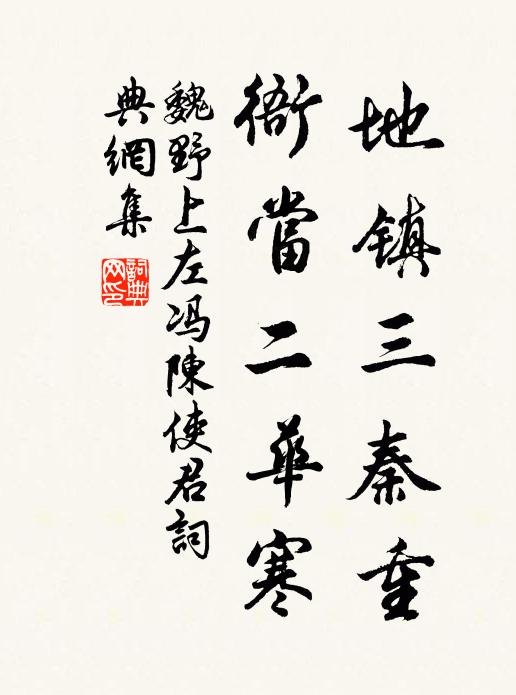 地镇三秦重
衙當二華寒
魏野上左冯陳使君詞
典網集
詞典
网印